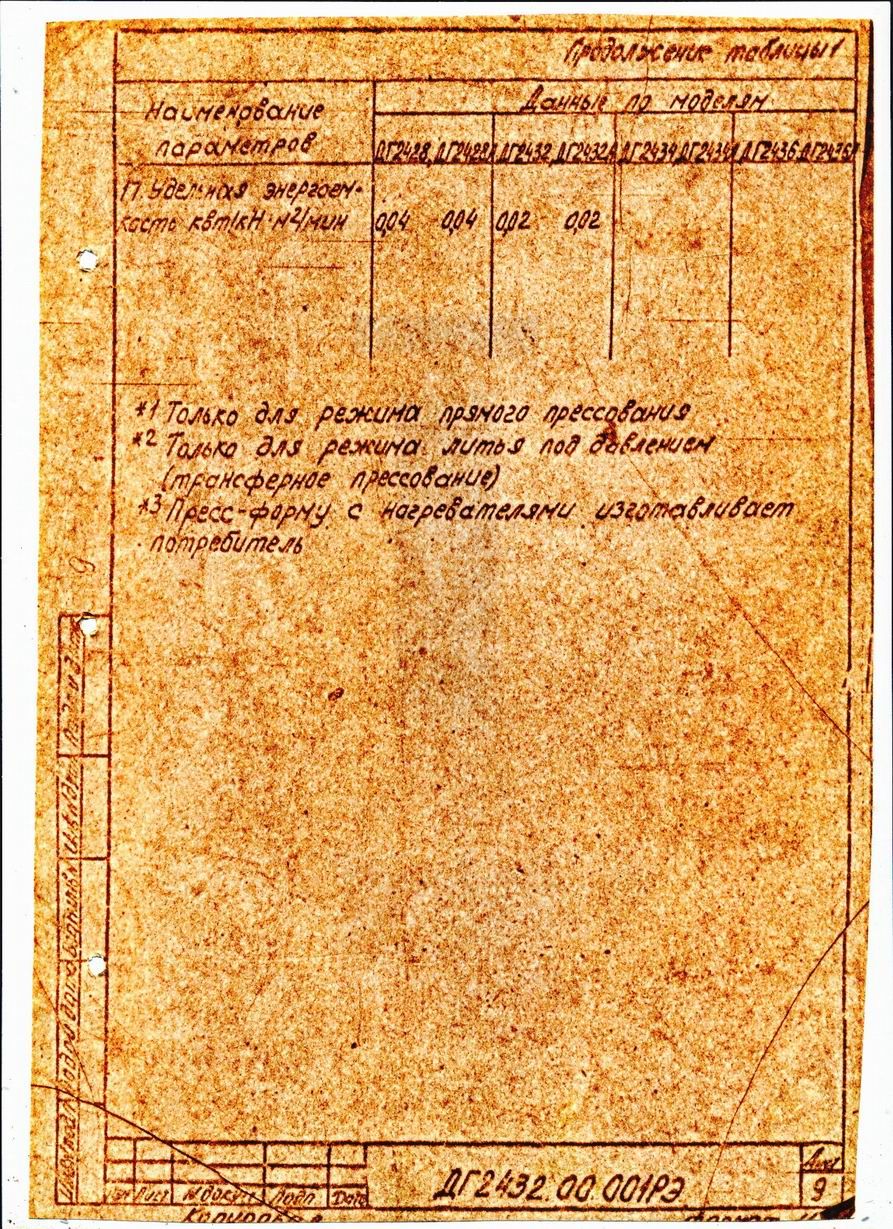 Продолжение таблицы 1
Наименование параметров
Данные по моделям
ДГ2428, ДГ2428А ДГ2432, ДГ2432А ДГ2434, ДГ2434А ДГ2436, ДГ2436А
17. Удельная энергоем-
кость квт/кН·м2/мин 0,04 0,04 0,02 0,02
*1 Только для режима прямого прессования
*2 Только для режима литья под давлением
(трансферное прессование)
*3 Пресс-форму с нагревателями изготавливает
потребитель
Лист
Лист № докум. Подп. Дата
ДГ2432.00.001РЭ
9
Копировал